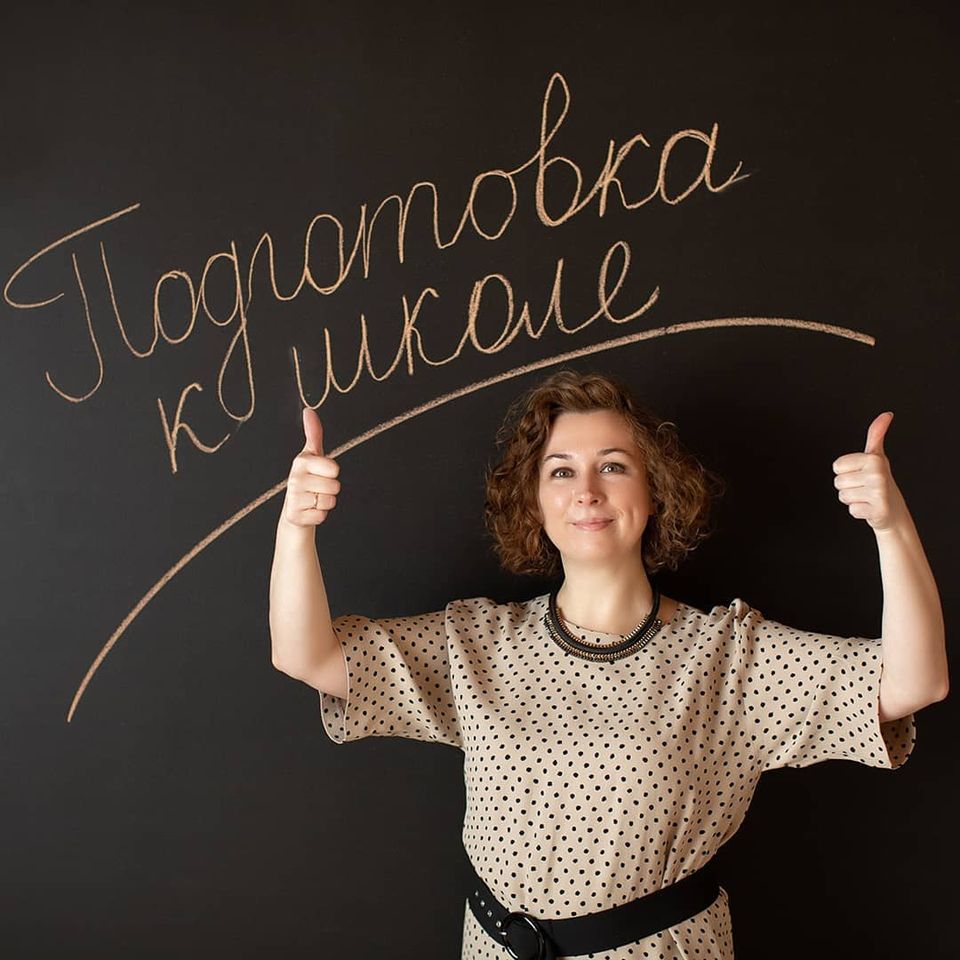 Подготовка
к школе